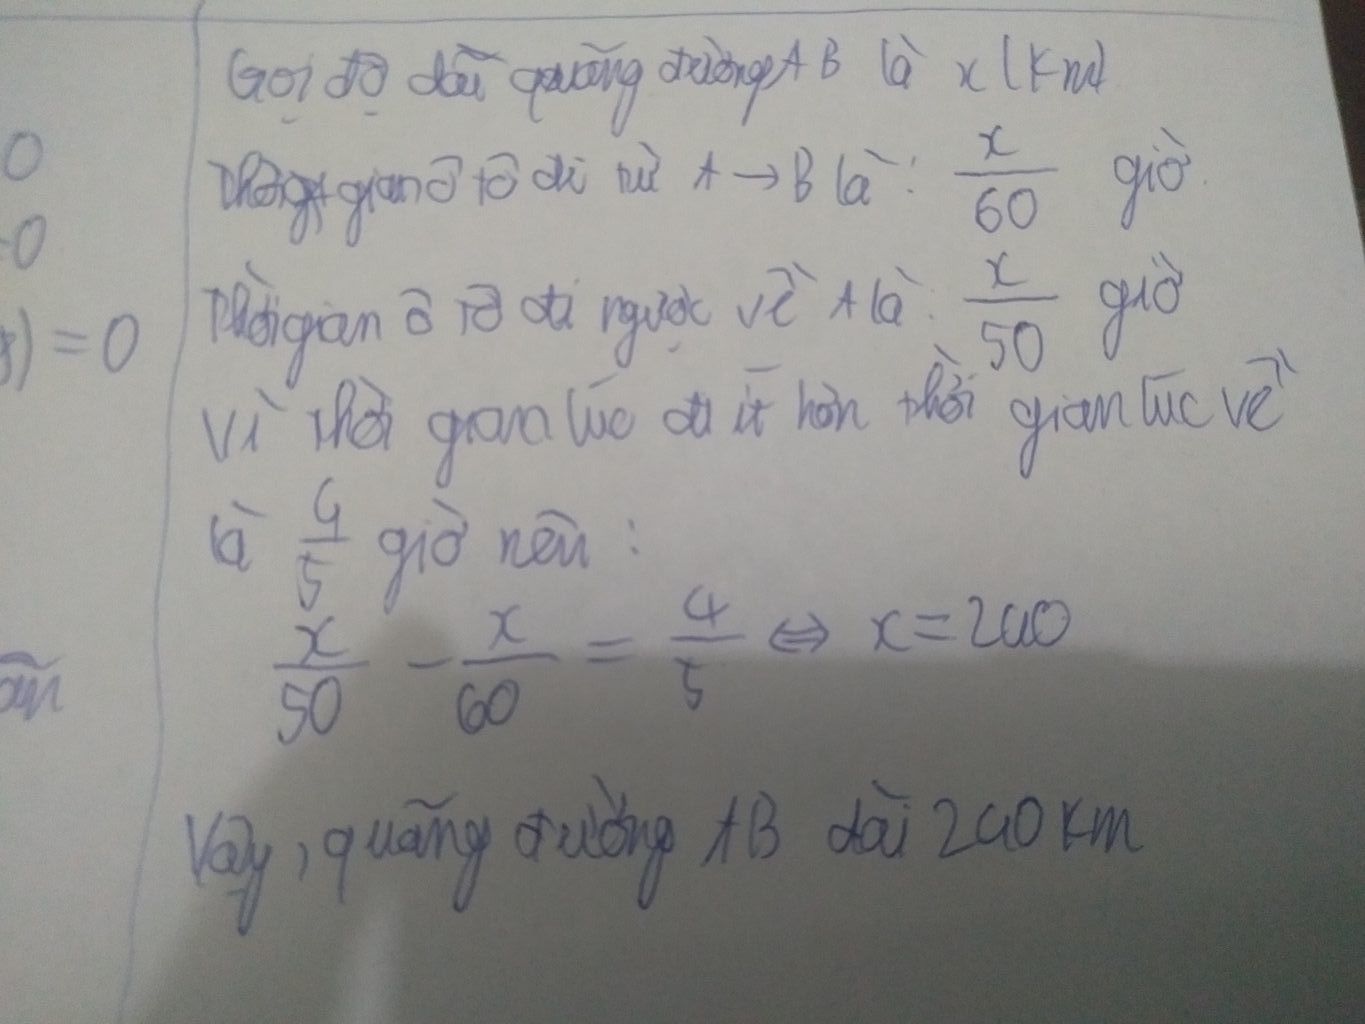 Gọi độ dài quãng đường AB là x (Km)
0
Thời gian ô tô đi từ A → B là: x/60 giờ.
-0
Thời gian ô tô đi ngược về A là: x/50 giờ
) = 0
Vì thời gian lúc đi ít hơn thời gian lúc về
là 4/5 giờ nên:
x/50 - x/60 = 4/5 ⇔ x = 240
Vậy, quãng đường AB dài 240 km